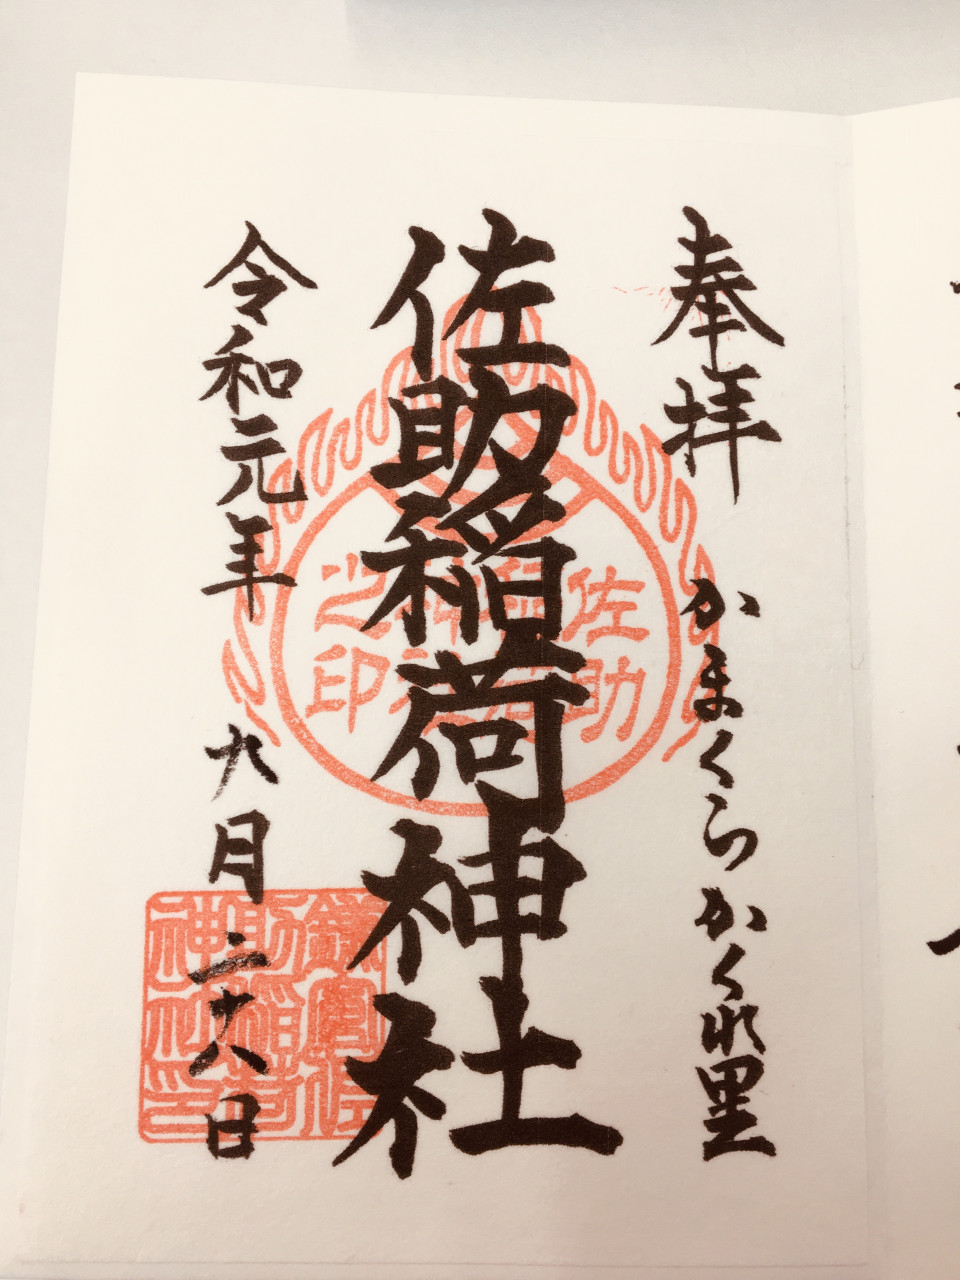 奉拝
かまくらかくれ里
佐助稲荷神社
令和元年 九月二十八日
佐助
稲荷
神社
之印
鎌倉佐
助稲荷